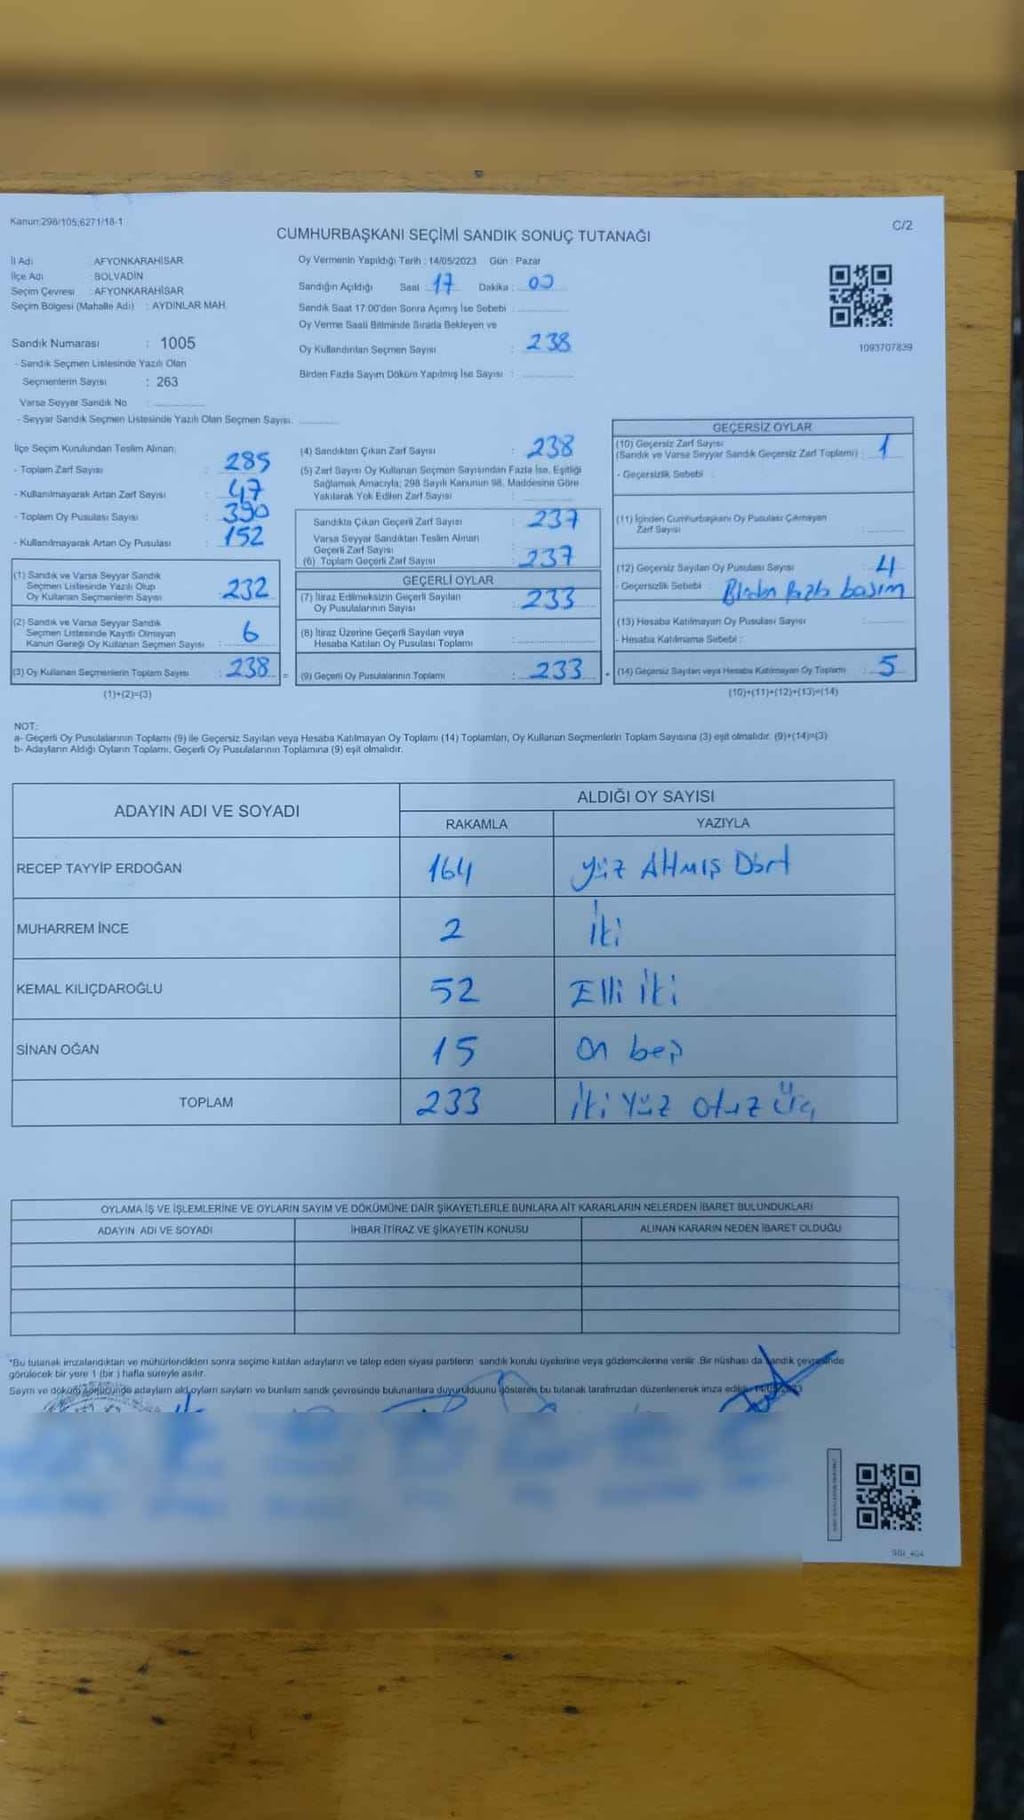 Kanun:298/105;6271/18-1
C/2
CUMHURBAŞKANI SEÇİMİ SANDIK SONUÇ TUTANAĞI
İl Adı : AFYONKARAHİSAR
İlçe Adı : BOLVADİN
Seçim Çevresi : AFYONKARAHİSAR
Seçim Bölgesi (Mahalle Adı) : AYDINLAR MAH.
Sandık Numarası : 1005
- Sandık Seçmen Listesinde Yazılı Olan
Seçmenlerin Sayısı : 263
Varsa Seyyar Sandık No :
- Seyyar Sandık Seçmen Listesinde Yazılı Olan Seçmen Sayısı:
Oy Vermenin Yapıldığı Tarih : 14/05/2023 Gün : Pazar
Sandığın Açıldığı Saat : 17 Dakika : 00
Sandık Saat 17:00'den Sonra Açımış İse Sebebi :
Oy Verme Saati Bitiminde Sırada Bekleyen ve
Oy Kullandırılan Seçmen Sayısı : 238
Birden Fazla Sayım Döküm Yapılmış İse Sayısı :
1093707839
İlçe Seçim Kurulundan Teslim Alınan:
- Toplam Zarf Sayısı : 285
- Kullanılmayarak Artan Zarf Sayısı : 47
- Toplam Oy Pusulası Sayısı : 390
- Kullanılmayarak Artan Oy Pusulası : 152
(1) Sandık ve Varsa Seyyar Sandık
Seçmen Listesinde Yazılı Olup
Oy Kullanan Seçmenlerin Sayısı : 232
(2) Sandık ve Varsa Seyyar Sandık
Seçmen Listesinde Kayıtlı Olmayan
Kanun Gereği Oy Kullanan Seçmen Sayısı : 6
(3) Oy Kullanan Seçmenlerin Toplam Sayısı : 238
(1)+(2)=(3)
(4) Sandıktan Çıkan Zarf Sayısı : 238
(5) Zarf Sayısı Oy Kullanan Seçmen Sayısından Fazla İse, Eşitliği
Sağlamak Amacıyla; 298 Sayılı Kanunun 98. Maddesine Göre
Yakılarak Yok Edilen Zarf Sayısı :
Sandıkta Çıkan Geçerli Zarf Sayısı : 237
Varsa Seyyar Sandıktan Teslim Alınan
Geçerli Zarf Sayısı :
(6) Toplam Geçerli Zarf Sayısı : 237
GEÇERLİ OYLAR
(7) İtiraz Edilmeksizin Geçerli Sayılan
Oy Pusulalarının Sayısı : 233
(8) İtiraz Üzerine Geçerli Sayılan veya
Hesaba Katılan Oy Pusulası Toplamı :
(9) Geçerli Oy Pusulalarının Toplamı : 233
GEÇERSİZ OYLAR
(10) Geçersiz Zarf Sayısı
(Sandık ve Varsa Seyyar Sandık Geçersiz Zarf Toplamı) : 1
- Geçersizlik Sebebi :
(11) İçinden Cumhurbaşkanı Oy Pusulası Çıkmayan
Zarf Sayısı :
(12) Geçersiz Sayılan Oy Pusulası Sayısı : 4
- Geçersizlik Sebebi : Birden fazla basım
(13) Hesaba Katılmayan Oy Pusulası Sayısı :
- Hesaba Katılmama Sebebi :
(14) Geçersiz Sayılan veya Hesaba Katılmayan Oy Toplamı : 5
(10)+(11)+(12)+(13)=(14)
NOT:
a- Geçerli Oy Pusulalarının Toplamı (9) ile Geçersiz Sayılan veya Hesaba Katılmayan Oy Toplamı (14) Toplamları, Oy Kullanan Seçmenlerin Toplam Sayısına (3) eşit olmalıdır. (9)+(14)=(3)
b- Adayların Aldığı Oyların Toplamı, Geçerli Oy Pusulalarının Toplamına (9) eşit olmalıdır.
ADAYIN ADI VE SOYADI ALDIĞI OY SAYISI
RAKAMLA YAZIYLA
RECEP TAYYİP ERDOĞAN 164 Yüz Altmış Dört
MUHARREM İNCE 2 İki
KEMAL KILIÇDAROĞLU 52 Elli İki
SİNAN OĞAN 15 On beş
TOPLAM 233 İki Yüz Otuz Üç
OYLAMA İŞ VE İŞLEMLERİNE VE OYLARIN SAYIM VE DÖKÜMÜNE DAİR ŞİKAYETLERLE BUNLARA AİT KARARLARIN NELERDEN İBARET BULUNDUKLARI
ADAYIN ADI VE SOYADI İHBAR İTİRAZ VE ŞİKAYETİN KONUSU ALINAN KARARIN NEDEN İBARET OLDUĞU
*Bu tutanak imzalandıktan ve mühürlendikten sonra seçime katılan adayların ve talep eden siyasi partilerin sandık kurulu üyelerine veya gözlemcilerine verilir. Bir nüshası da sandık çevresinde
görülecek bir yere 1 (bir ) hafta süreyle asılır.
Sayım ve döküm sonucunda adayların aldıkları oyların sayıları ve bunların sandık çevresinde bulunanlara duyurulduğunu gösteren bu tutanak tarafımızdan düzenlenerek imza edildi.